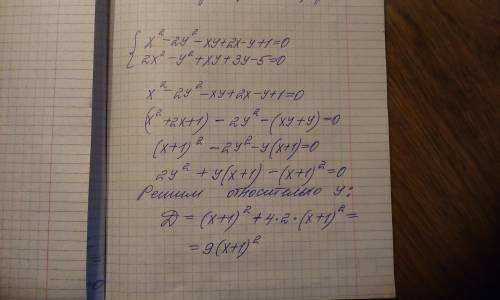 { x² - 2y² - xy + 2x - y + 1 = 0
2x² - y² + xy + 3y - 5 = 0
x² - 2y² - xy + 2x - y + 1 = 0
(x² + 2x + 1) - 2y² - (xy + y) = 0
(x+1)² - 2y² - y(x+1) = 0
2y² + y(x+1) - (x+1)² = 0
Решим относительно y:
D = (x+1)² + 4·2·(x+1)² =
= 9(x+1)²